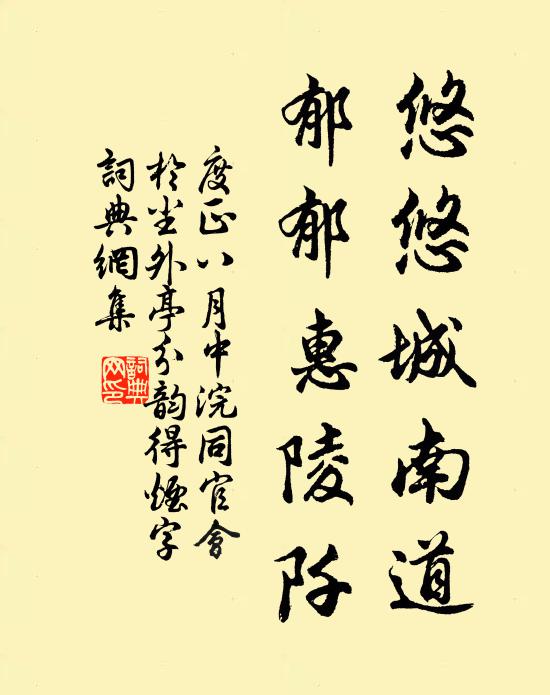 悠悠城南道
郁郁惠陵阡
度正八月中浣同官會
於尘外亭分韵得烟字
詞典網集
詞典
网印